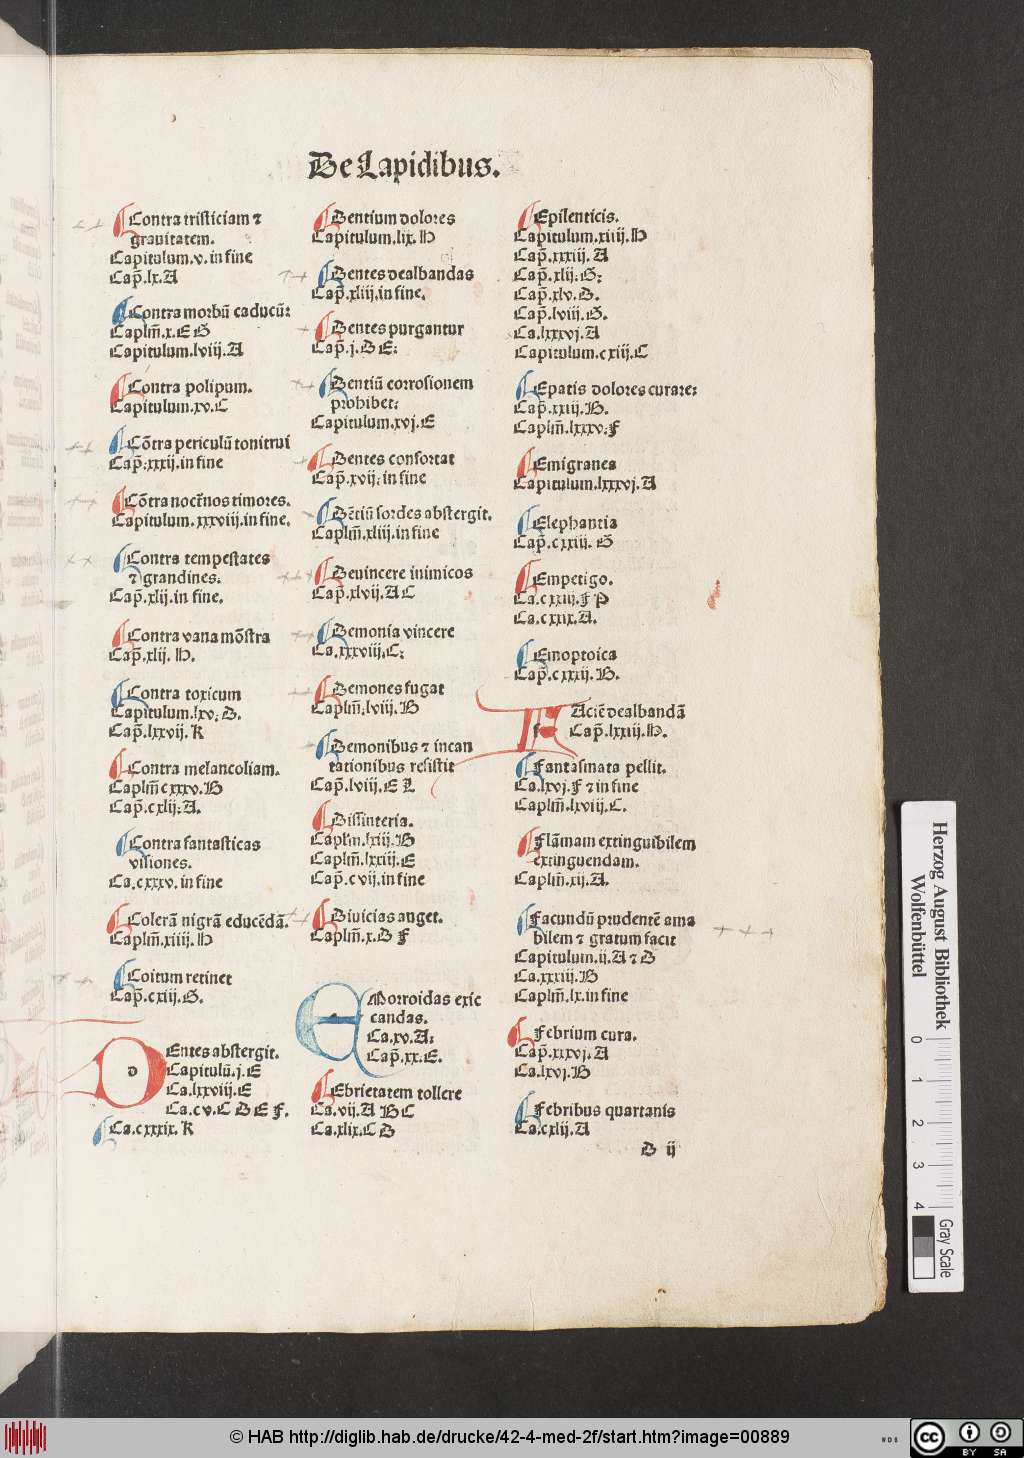 De Lapidibus.
Contra tristiciam ⁊
grauitatem.
Capitulum.v.in fine
Cap̃.lx.A
Contra morbũ caducũ:
Caplm̃.x.E G
Capitulum.lviij.A
Contra polipum.
Capitulum.xv.C
Cõtra periculũ tonitrui
Cap̃.xxxij.in fine
Cõtra noct̃nos timores.
Capitulum.xxxviij.in fine.
Contra tempestates
⁊ grandines.
Cap̃.xlij.in fine.
Contra vana mõstra
Cap̃.xlij.H.
Contra toxicum
Capitulum.lxv.D.
Cap̃.lxxvij.K
Contra melancoliam.
Caplm̃ cxxxv.B
Cap̃.cxlij.A.
Contra fantasticas
visiones.
Ca.cxxxv.in fine
Colerã nigrã educẽdã.
Caplm̃.xiiij.H
Coitum retinet
Cap̃.cxiij.G.
D Entes abstergit.
Capitulũ.j.E
Ca.lxxviij.E
Ca.cv.C D E F.
Ca.cxxxix.K
Dentium dolores
Capitulum.lix.H
Dentes dealbandas
Cap̃.xliij.in fine.
Dentes purgantur
Cap̃.j.D E:
Dentiũ corrosionem
prohibet:
Capitulum.xvj.E
Dentes confortat
Cap̃.xvij:in fine
Dẽtiũ sordes abstergit.
Caplm̃.xliij.in fine
Deuincere inimicos
Cap̃.xlvij.A C
Demonia vincere
Ca.xxxviij.C:
Demones fugat
Caplm̃:lviij.B
Demonibus ⁊ incan
tationibus resistit
Cap̃.lviij.E L
Dissinteria.
Caplm̃.lxiij.B
Caplm̃.lxxiij.E
Cap̃.cvij.in fine
Diuicias auget.
Caplm̃.x.D F
E Morroidas exic
candas.
Ca.xv.A:
Cap̃.xx.E.
Ebrietatem tollere
Ca.vij.A B C
Ca.xlix.C D
Epilenticis.
Capitulum.xiiij.H
Cap̃.xxxiij.A
Cap̃.xlij.G:
Cap̃.xlv.D.
Cap̃.lviij.G.
Ca.lxxxvj.A
Capitulum.cxiij.C
Epatis dolores curare:
Cap̃.xxiij.B.
Caplm̃.lxxxv:F
Emigranea
Capitulum.lxxxvj.A
Elephantia
Cap̃.cxxiij.G
Empetigo.
Ca.cxxiij.F P
Ca.cxxix.A.
Emoptoica
Cap̃.cxxxij.B.
F Aciẽ dealbandã
Cap̃.lxxiij.H.
Fantasmata pellit.
Ca.lxvj.F ⁊ in fine
Caplm̃.lxviij.C.
Flãmam extinguibilem
extinguendam.
Caplm̃.xij.A.
Facundũ prudentẽ ama
bilem ⁊ gratum facit
Capitulum.ij.A ⁊ D
Ca.xxxiij.B
Caplm̃.lx.in fine
Febrium cura.
Cap̃.xxxvj.A
Ca.lxvj.B
Febribus quartanis
Ca.cxlij.A
D ij
Herzog August Bibliothek
Wolfenbüttel
0 1 2 3 4
Gray Scale
© HAB http://diglib.hab.de/drucke/42-4-med-2f/start.htm?image=00889
WDB
cc BY SA